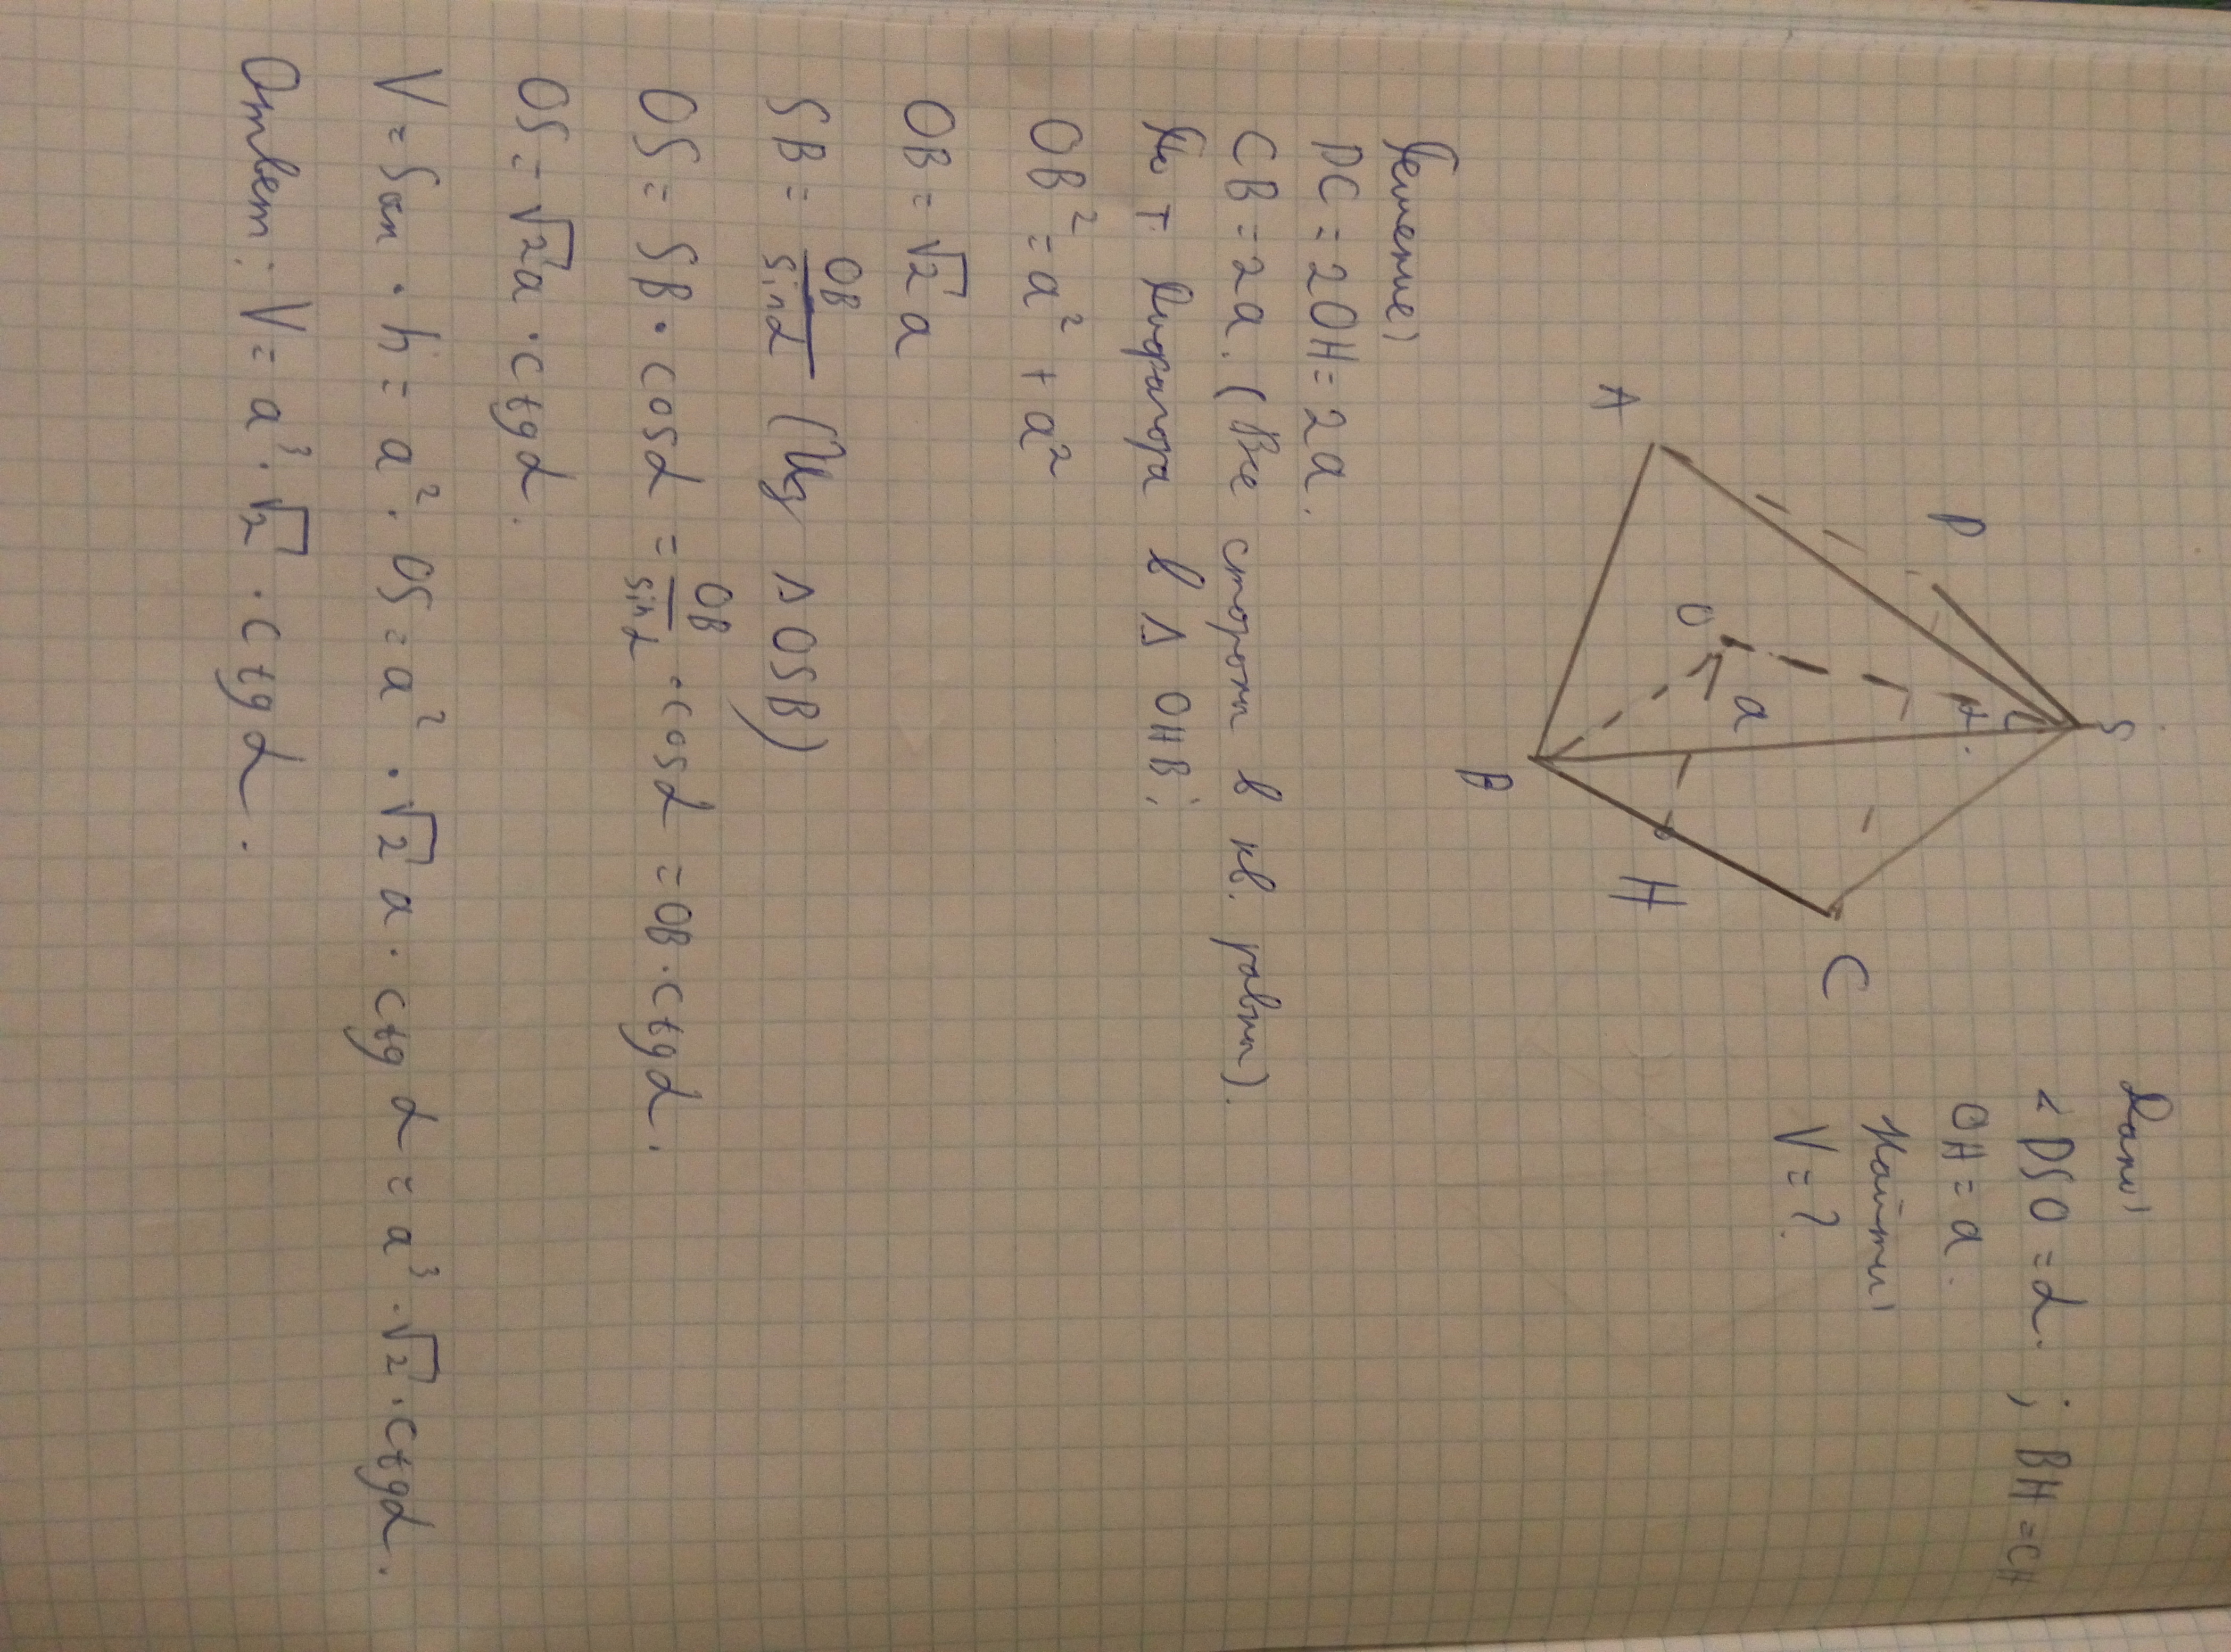 Дано:
∠DSO = α. ; BH = CH
OH = a.
Найти:
V = ?
S
D
A
O
a
α
B
H
C
Решение:
DC = 2OH = 2a.
CB = 2a. (Все стороны в кв. равны).
По т. Пифагора в Δ OHB:
OB² = a² + a²
OB = √2 a
SB = OB/sinα (Из Δ OSB)
OS = SB · cosα = OB/sinα · cosα = OB · ctgα.
OS = √2 a · ctgα.
V = Sосн · h = a² · OS = a² · √2 a · ctgα = a³ · √2 · ctgα.
Ответ: V = a³ · √2 · ctgα.